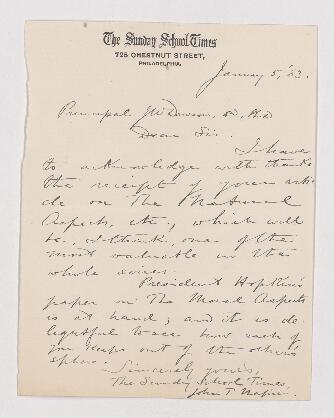 The Sunday School Times
725 CHESTNUT STREET,
PHILADELPHIA.
January 5, '83.
Principal JW Dawson,
Dear Sir.
I have
to acknowledge with thanks
the receipt of your arti-
cle on The Natural
Aspects, etc., which will
be, I think, one of the
most valuable in the
whole series.
President Hopkins's
paper on The Moral Aspects
is at hand; and it is de-
lightful to see how each of
you keeps out of the others
sphere.
Sincerely yours,
The Sunday School Times,
John T. Napier